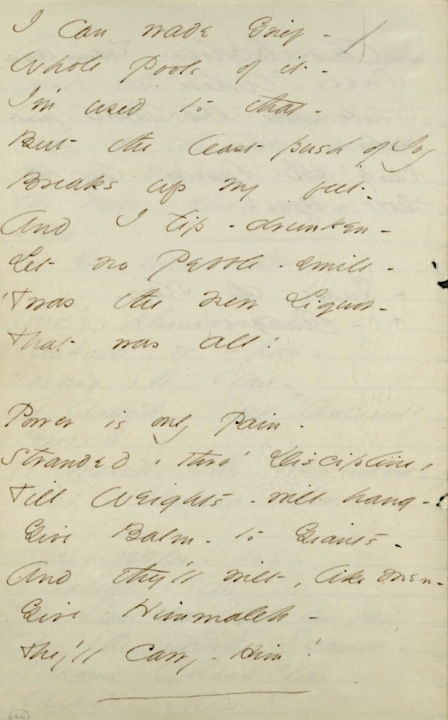 I can wade Grief -
Whole Pools of it -
I'm used to that -
But the least push of Joy
Breaks up my feet -
And I tip - drunken -
Let no Pebble - smile -
'Twas the New Liquor -
That was all!
Power is only Pain -
Stranded - thro' Discipline,
Till Weights - will hang -
Give Balm - to Giants -
And they'll wilt, like Men -
Give Himmaleh -
They'll Carry - Him!